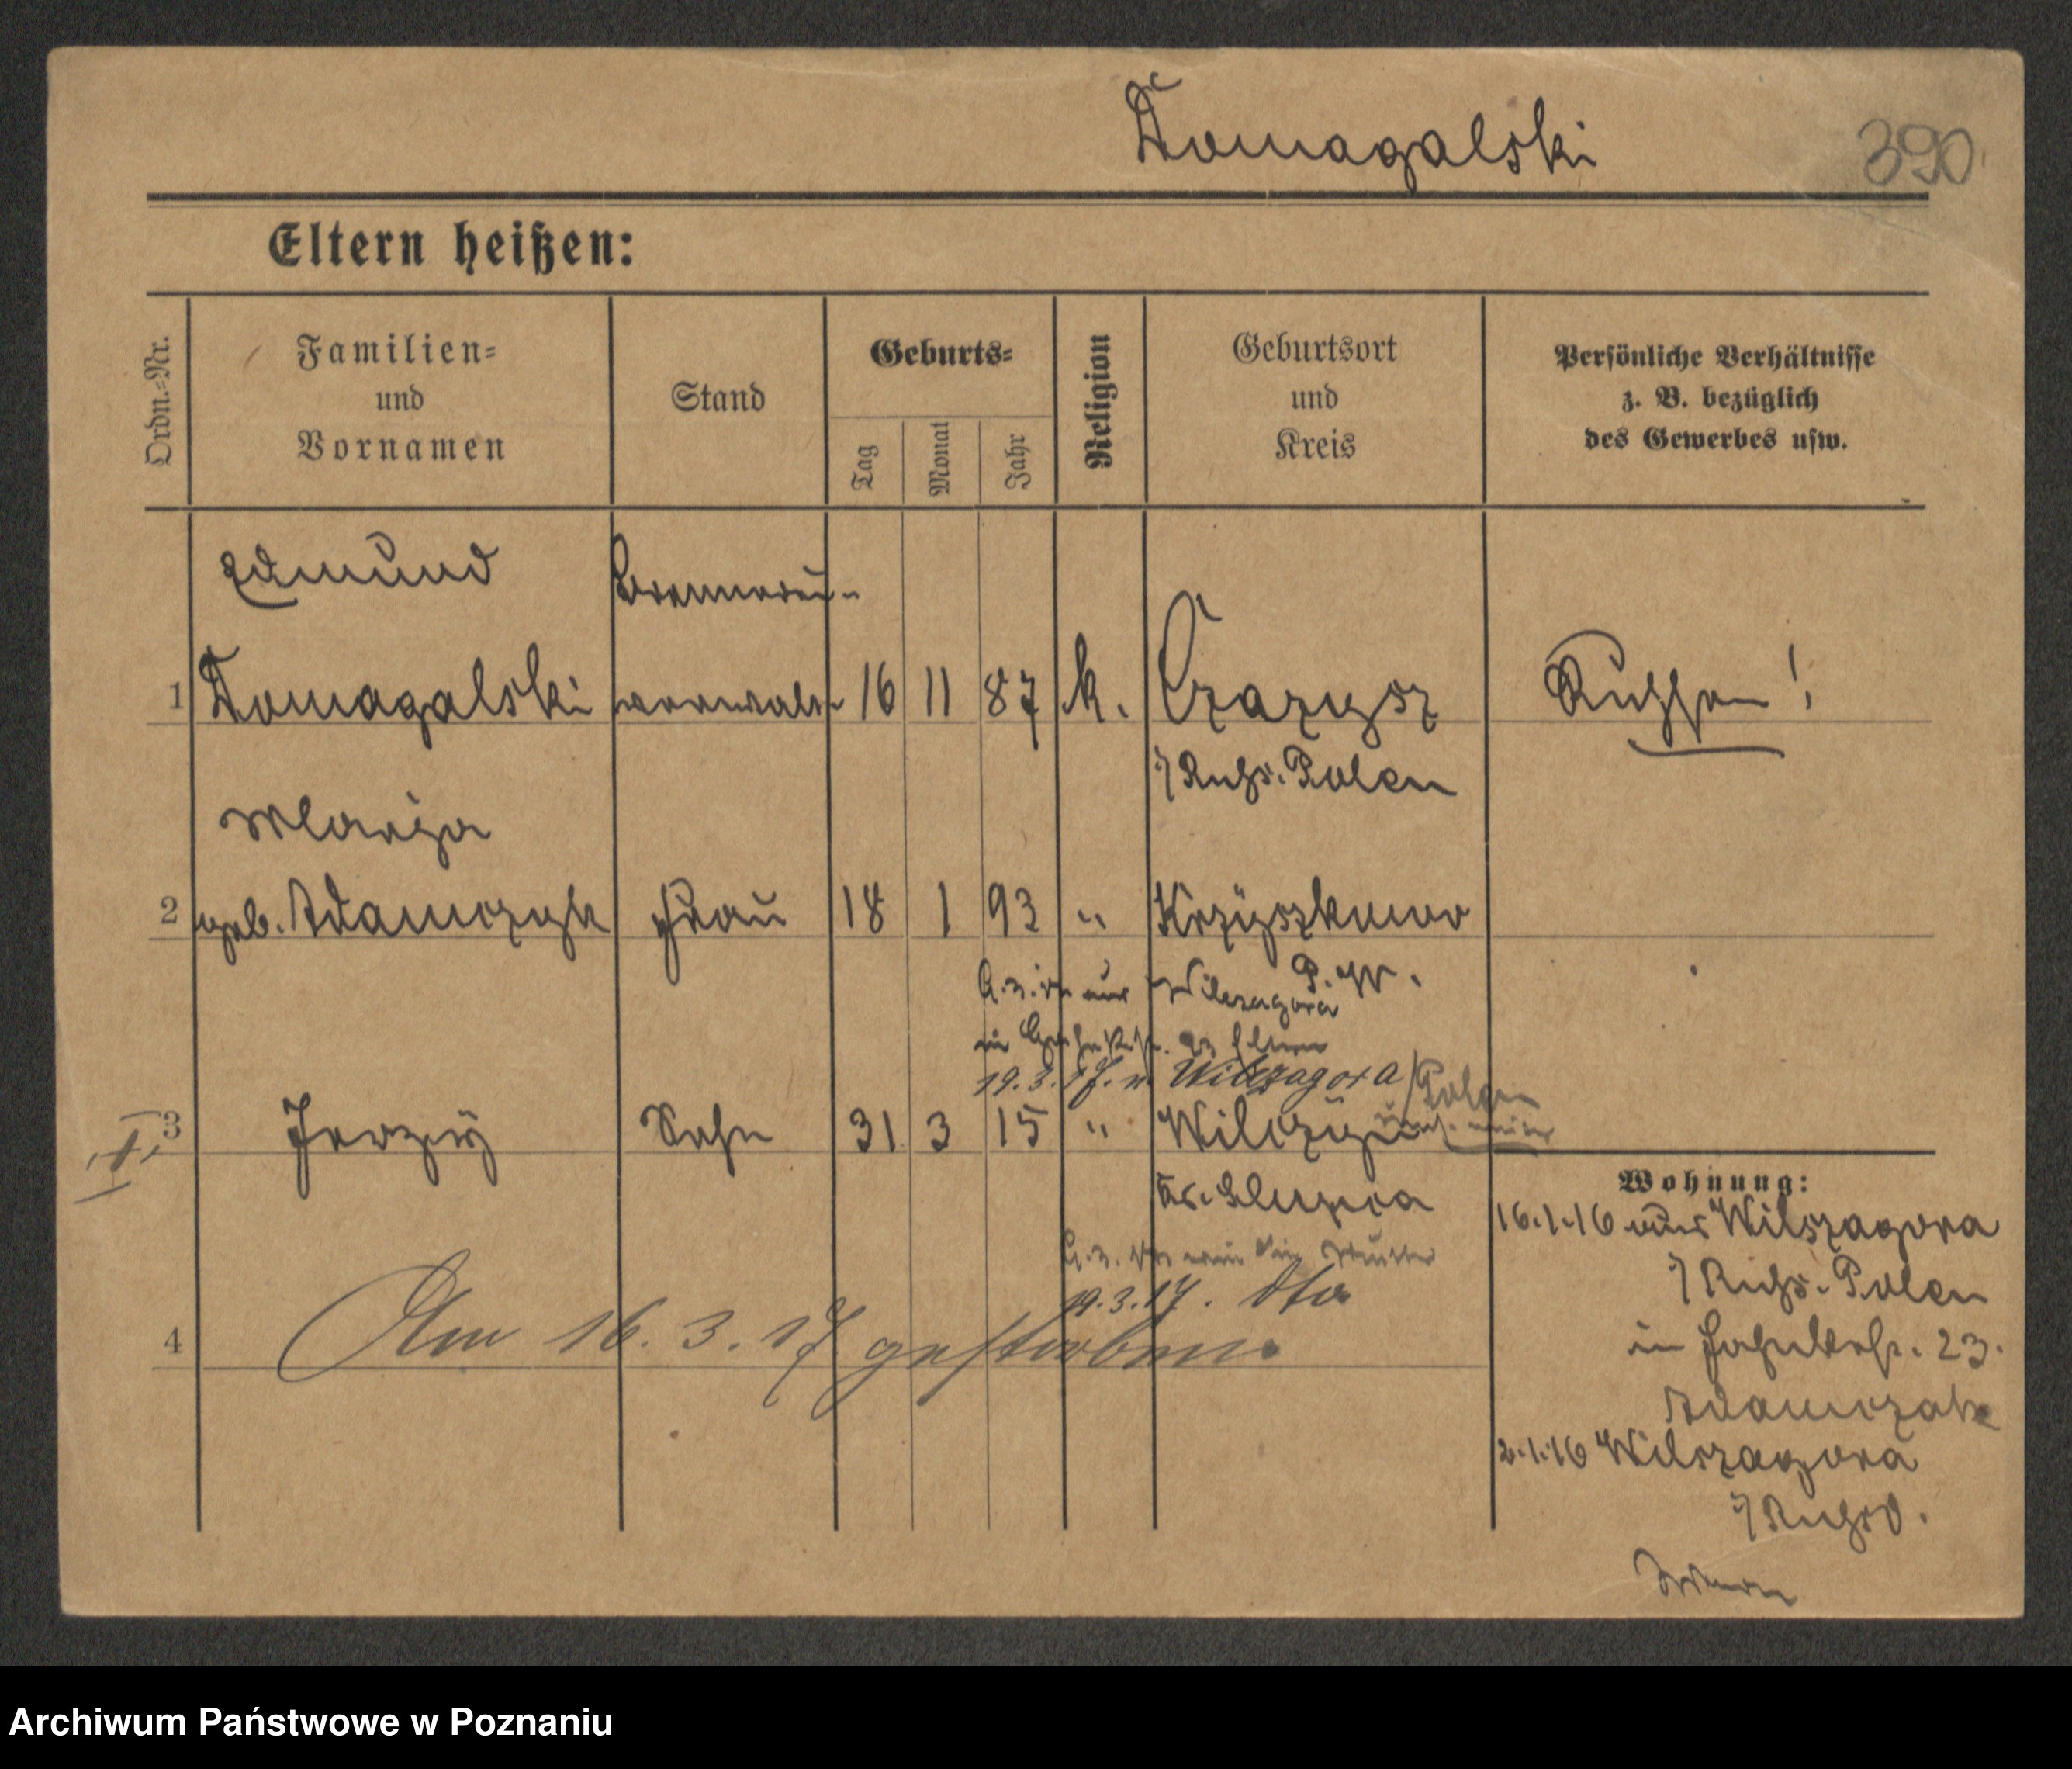 Domagalski
390
Eltern heißen:
Ordn.-Nr.
Familien-
und
Vornamen
Stand
Geburts-
Tag
Monat
Jahr
Religion
Geburtsort
und
Kreis
Persönliche Verhältnisse
z. B. bezüglich
des Gewerbes usw.
Edmund
Brennerei-
1 Domagalski verwalt. 16 11 87 k. Russen!
i/ Russ. Polen
Marja
2 geb. Frau 18 1 93 " Krzyszkowo
P. W.
aus Wilczagora
in
19.3.17. n. Wilczagora/Polen
3 Jerzy Sohn 31 3 15 " Wilczyn
Kr. Slupca
Mutter
19.3.17. dto
4 Am 16.3.17 gestorben.
Wohnung:
16.1.16 aus Wilczagora
i/ Russ. Polen
in 23.
Adamczak
2.1.16 Wilczagora
i/ Russl.
Archiwum Państwowe w Poznaniu